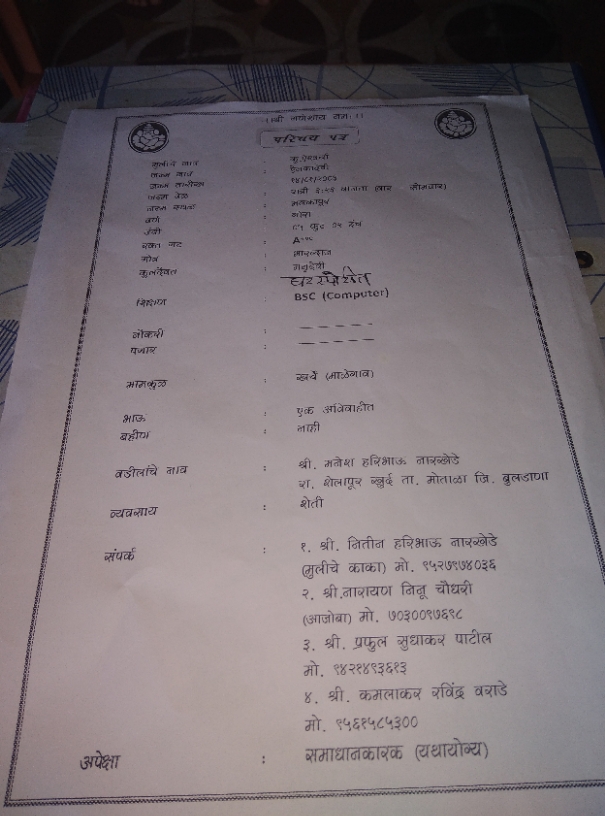 ।।श्री गणेशाय नमः।।
परिचय पत्र
मुलीचे नाव :
जन्म नाव :
जन्म तारीख :
जन्म वेळ :
जन्म स्थळ : मलकापूर
वर्ण : गोरा
उंची :
रक्त गट :
गोत्र :
कुलदैवत :
शिक्षण : BSC (Computer)
नोकरी : - - - - -
पगार : - - - - -
मामकुळ : खर्चे (माळेगाव)
भाऊ : एक अविवाहीत
बहीण : नाही
वडीलांचे नाव : श्री. मनेश हरिभाऊ नारखेडे
रा. शेलापूर खुर्द ता. मोताळा जि. बुलडाणा
व्यवसाय : शेती
संपर्क : १. श्री. नितीन हरिभाऊ नारखेडे
(मुलीचे काका) मो. ९५२७९७४०३६
२. श्री.नारायण निनू चौधरी
(आजोबा) मो. ७०३००९७६९८
३. श्री. प्रफुल सुधाकर पाटील
मो. ९४२१४९३६१३
४. श्री. कमलाकर रविंद्र वराडे
मो. ९५६१५८५३००
अपेक्षा : समाधानकारक (यथायोग्य)